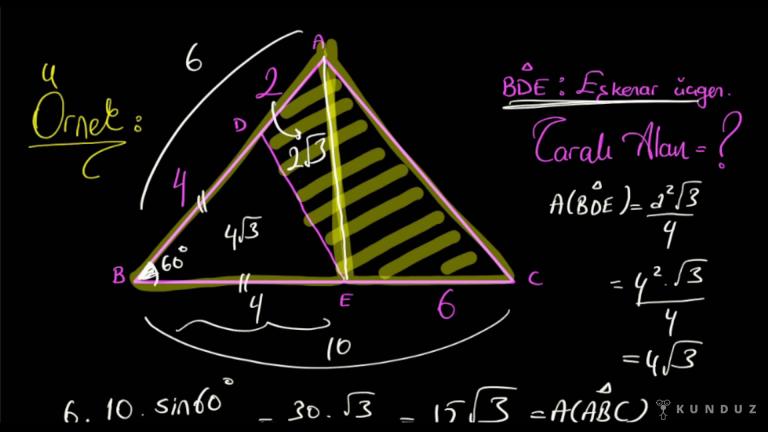 Örnek:
6
A
2
D
2√3
4
4√3
B
60°
4
E
6
C
10
BDE : Eşkenar üçgen.
Taralı Alan = ?
A(BDE) = a²√3
4
= 4².√3
4
= 4√3
6. 10. sin60° = 30.√3 = 15√3 = A(ABC)
KUNDUZ